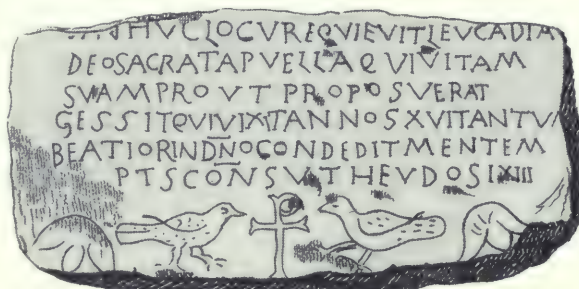 HVC LOCV REQVIEVIT LEVCADIA
DEO SACRATA PVELLA QVI VITAM
SVAM PROVT PROPOSVERAT
GESSIT QVI VIXIT ANNOS XVI TANTVM
BEATIOR IN DNO CONDEDIT MENTEM
PTS CONSV THEVDOSI XIII